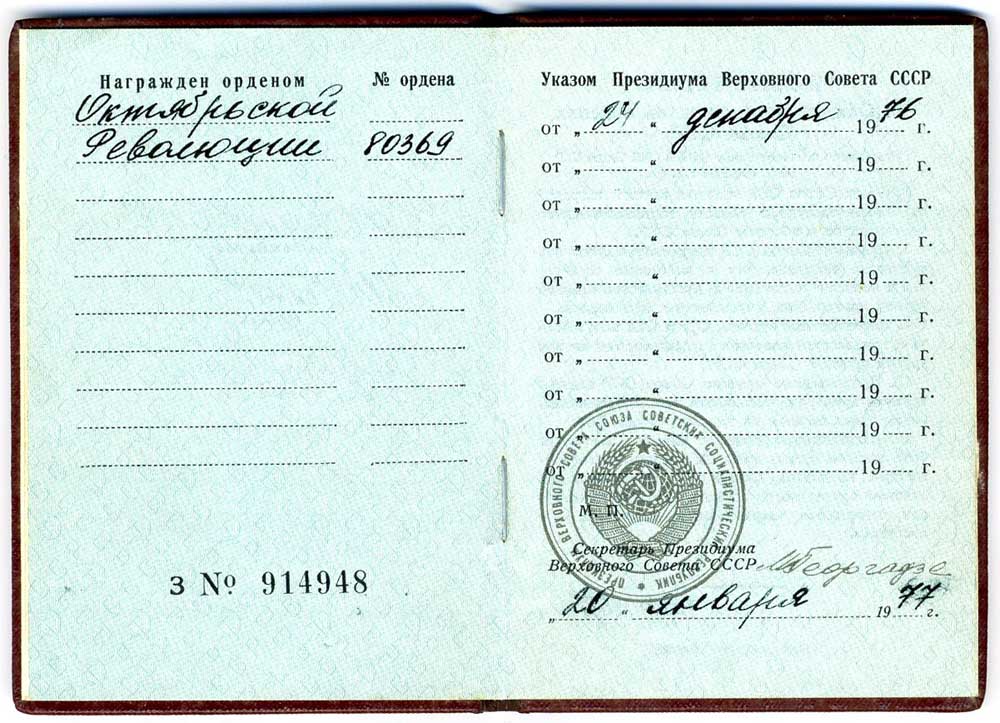 Награжден орденом № ордена
Октябрьской
Революции 80369
З № 914948
Указом Президиума Верховного Совета СССР
от „ 24 “ декабря 1976 г.
от „ “ 19 г.
от „ “ 19 г.
от „ “ 19 г.
от „ “ 19 г.
от „ “ 19 г.
от „ “ 19 г.
от „ “ 19 г.
от „ “ 19 г.
от „ “ 19 г.
ПРЕЗИДИУМ ВЕРХОВНОГО СОВЕТА СОЮЗА СОВЕТСКИХ СОЦИАЛИСТИЧЕСКИХ РЕСПУБЛИК
М. П.
Секретарь Президиума
Верховного Совета СССР МГеоргадзе
„ 20 “ января 1977 г.